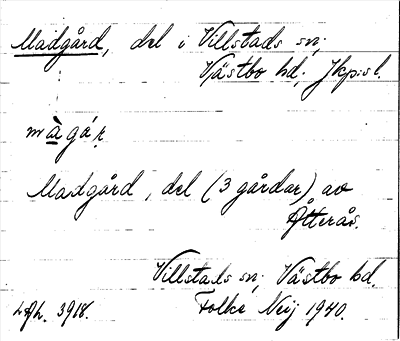 Madgård, del i Villstads sn;
Västbo hd. Jkp:sl.
màgár
Madgård, del (3 gårdar) av
Åtterås.
Villstads sn; Västbo hd.
3918. Folke Neij 1940.